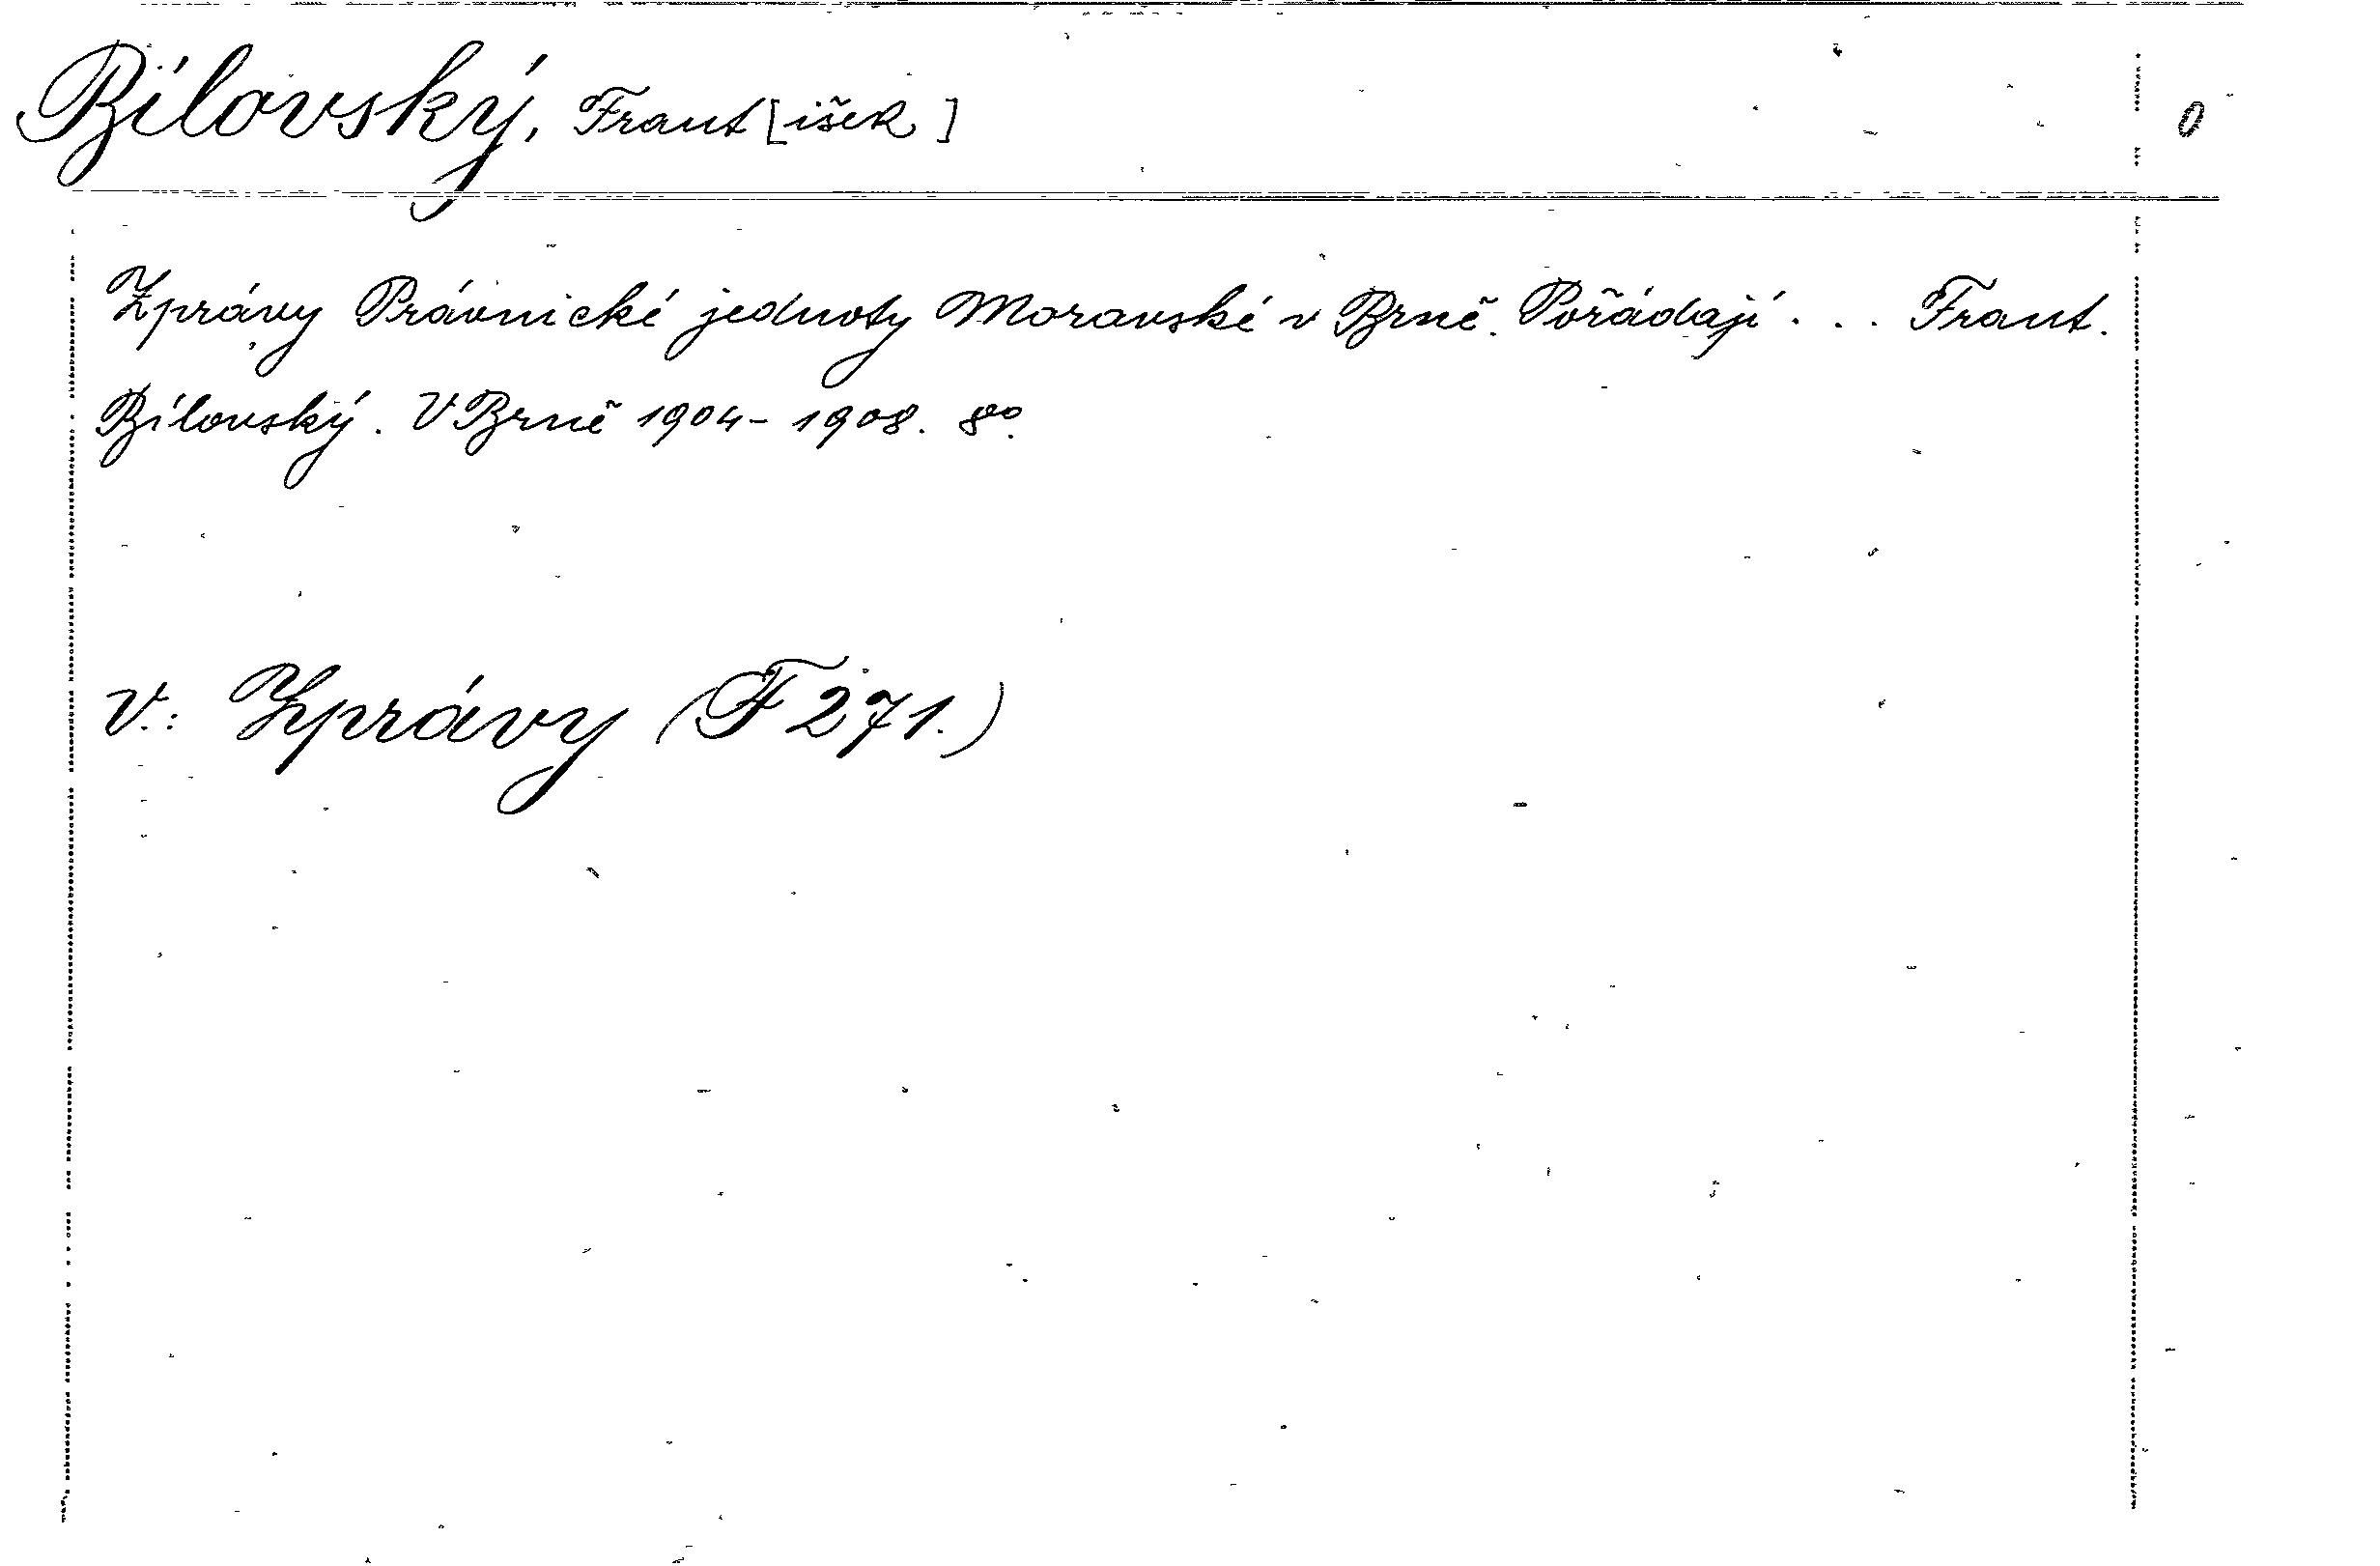 Bílovský, Frant[išek] 0
Zprávy Právnické jednoty Moravské v Brně. Pořádají . . . Frant.
Bílovský. V Brně 1904-1908. 8º.
V.: Zprávy (F 271.)